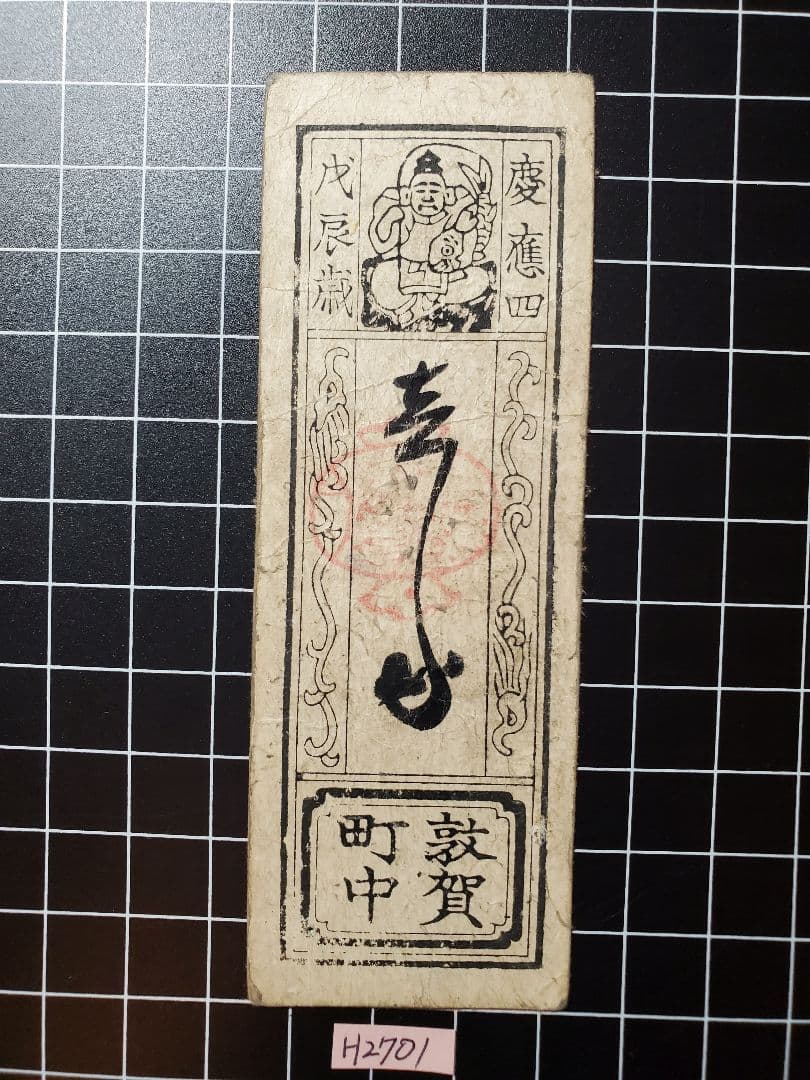 慶應四
戊辰歳
敦賀
町中
H2701